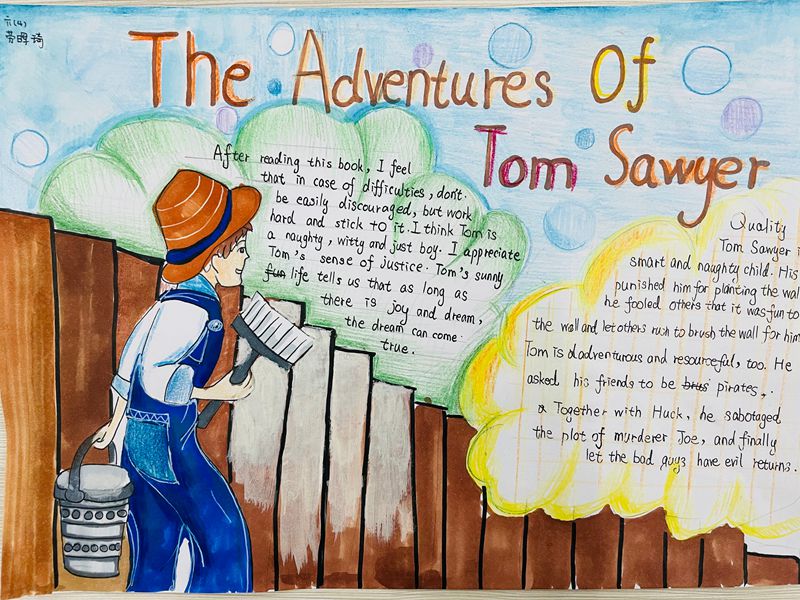 六(4)
劳暐琦
The Adventures Of
Tom Sawyer
After reading this book, I feel
that in case of difficulties, don't
be easily discouraged, but work
hard and stick to it. I think Tom is
a naughty, witty and just boy. I appreciate
Tom's sense of justice. Tom's sunny
fun life tells us that as long as
there is joy and dream,
the dream can come
true.
Quality
Tom Sawyer i
smart and naughty child. His
punished him for planting the wal
he fooled others that it was fun to
the wall and let others rush to brush the wall for him
Tom is adadventurous and resourceful, too. He
asked his friends to be brus pirates,.
a Together with Huck, he sabotaged
the plot of murderer Joe, and finally
let the bad guys have evil returns.